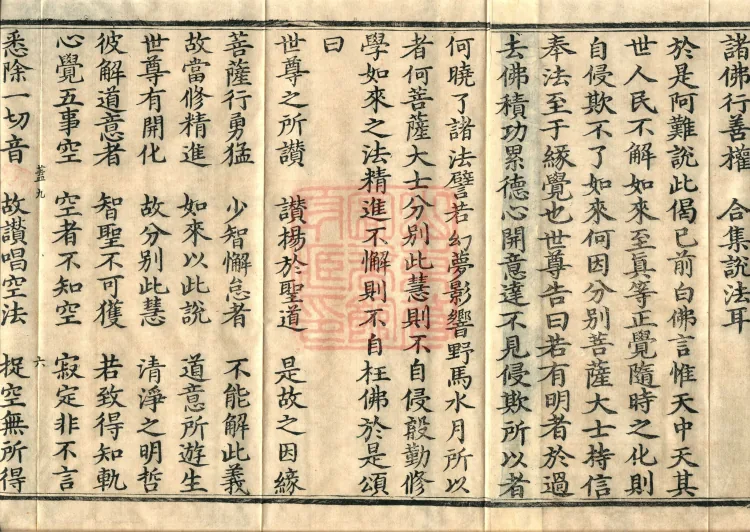 諸佛行善權　合集說法耳
於是阿難說此偈已前白佛言惟天中天其
世人民不解如來至真等正覺隨時之化則
自侵欺不了如來何因分別菩薩大士持信
奉法至于緣覺也世尊告曰若有明者於過
去佛積功累德心開意達不見侵欺所以者
何曉了諸法譬若幻夢影響野馬水月所以
者何菩薩大士分別此慧則不自侵殷勤修
學如來之法精進不懈則不自枉佛於是頌
曰
世尊之所讚　讚揚於聖道　是故之因緣
菩薩行勇猛　少智懈怠者　不能解此義
故當修精進　如來以此說　道意所遊生
世尊有開化　故分別此慧　清淨之明哲
彼解道意者　智聖不可獲　若致得知軌
心覺五事空　空者不知空　寂定非不言
九　六
悉除一切音　故讚唱空法　捉空無所得